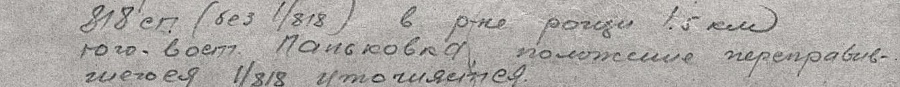 818 сп (без 1/818) в р-не рощи 1.5 км
юго-вост. Паньковка, положение переправив-
шегося 1/818 уточняется.